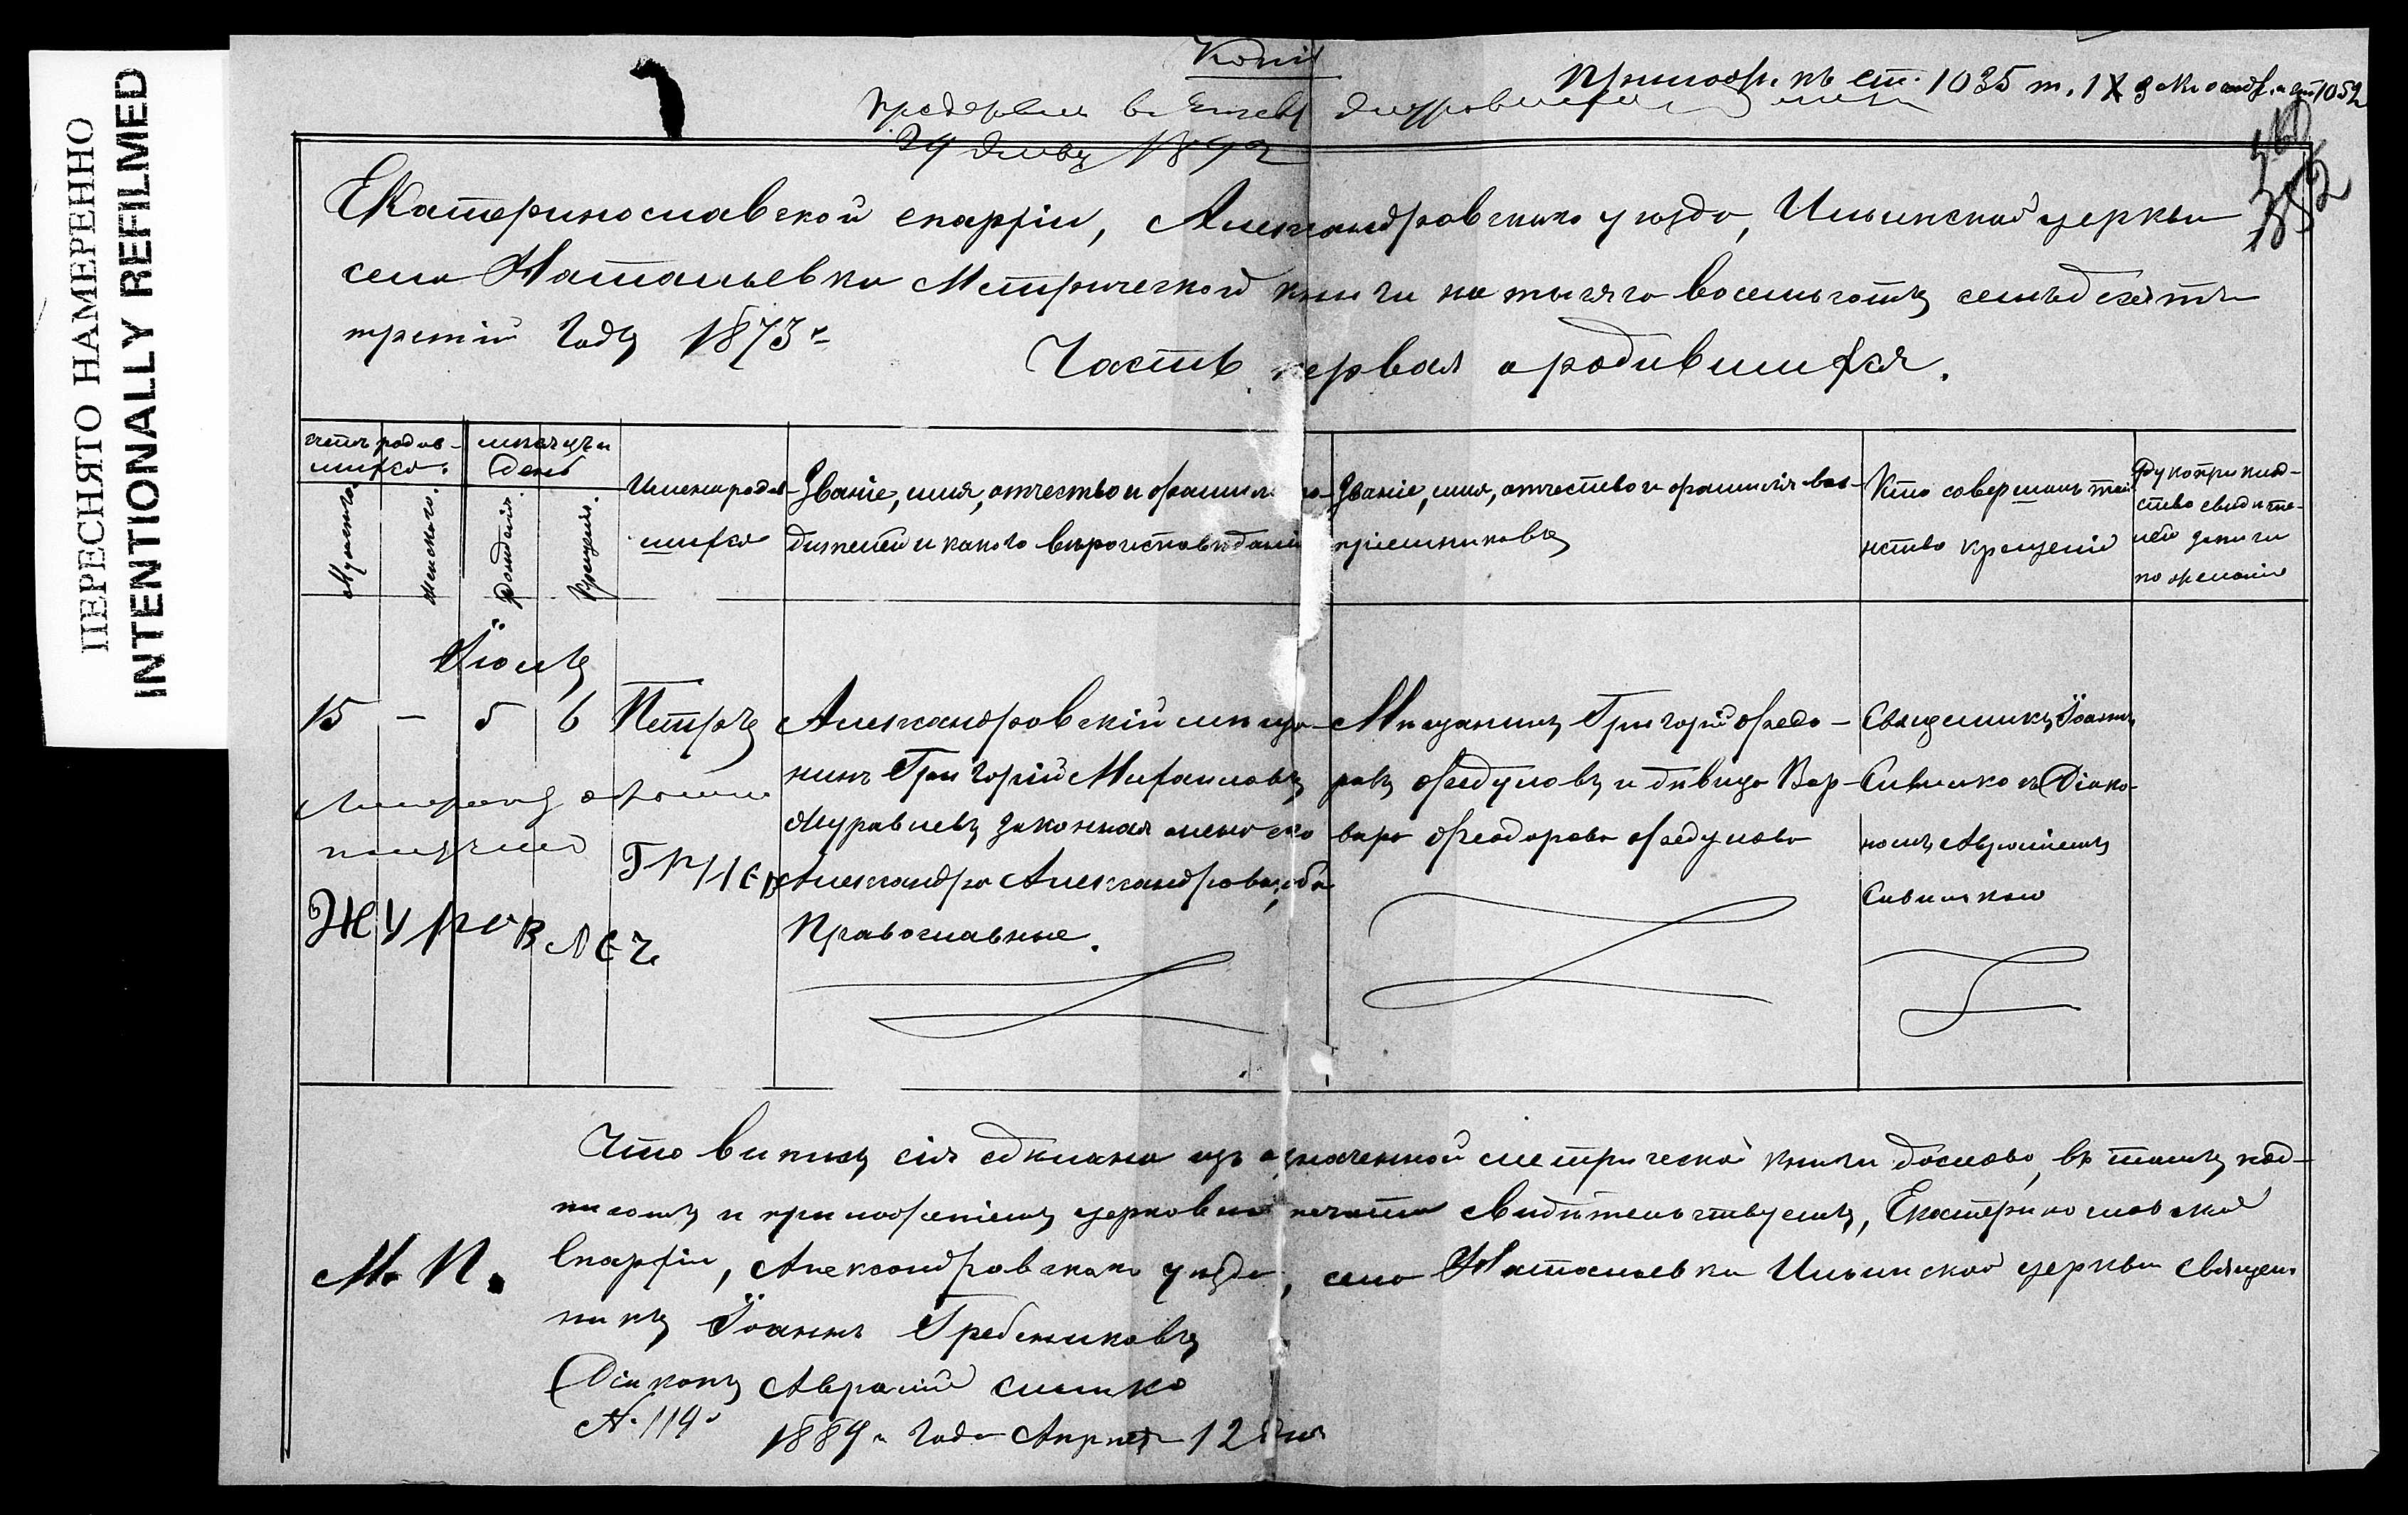 ПЕРЕСНЯТО НАМЕРЕННО
INTENTIONALLY REFILMED
Копія
Прилож. къ ст. 1035 т. IX
Январь 1892
Екатеринославской епархіи, Александровскаго уѣзда, Ильинской церкви
села Натальевки Метрической книги на тысяча восемьсотъ семьдесятъ
третій годъ 1873 г.
Часть первая о родившихся.
Счетъ родив-
шихся.
Мужеска.
Женскаго.
мѣсяцъ и
день
рожденія.
крещенія.
Имена родив-
шихся
Званіе, имя, отчество и фамилія ро-
дителей и какого вѣроисповѣданія
Званіе, имя, отчество и фамилія вос-
пріемниковъ
Кто совершалъ таи-
нство крещенія
Рукоприклад-
ство свидѣте-
лей записи
по желанію
Іюль
15 — 5 6 Петръ
Александровскій мѣща-
нинъ Григорій Михаиловъ
Журавлевъ законная жена его
Александра Александрова, оба
Православные.
Мѣщанинъ Григорій Федо-
ровъ Федуловъ и дѣвица Вар-
вара Феодорова Федулова
Священникъ Іоаннъ
Сивилко съ Діако-
номъ Авраміемъ
Сивилкою
Журовлеч
Что выпись сія сдѣлана изъ означенной метрической книги дословно, въ томъ под-
писомъ и приложеніемъ церковной печати свидѣтельствуемъ, Екатеринославской
Епархіи, Александровскаго уѣзда, села Натальевки Ильинской церкви священ-
никъ Іоаннъ Гребенниковъ
М. П.
Діаконъ Аврамій
№ 119
1889 года Апрѣля 12 дня